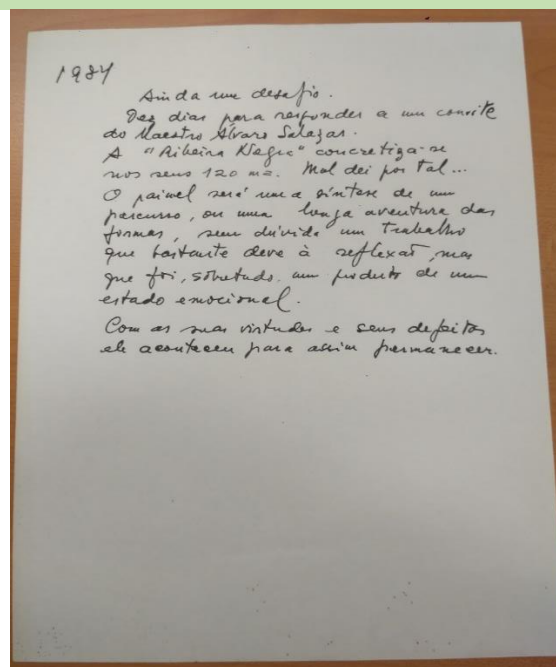 1984
Ainda um desafio.
Dez dias para responder a um convite
do Maestro Álvaro Salazar.
A "Ribeira Negra" concretiza-se
nos seus 120 m2. Mal dei por tal...
O painel será uma síntese de um
percurso, ou uma longa aventura das
formas, sem dúvida um trabalho
que bastante deve à reflexão, mas
que foi, sobretudo, um produto de um
estado emocional.
Com as suas virtudes e seus defeitos
ele aconteceu para assim permanecer.